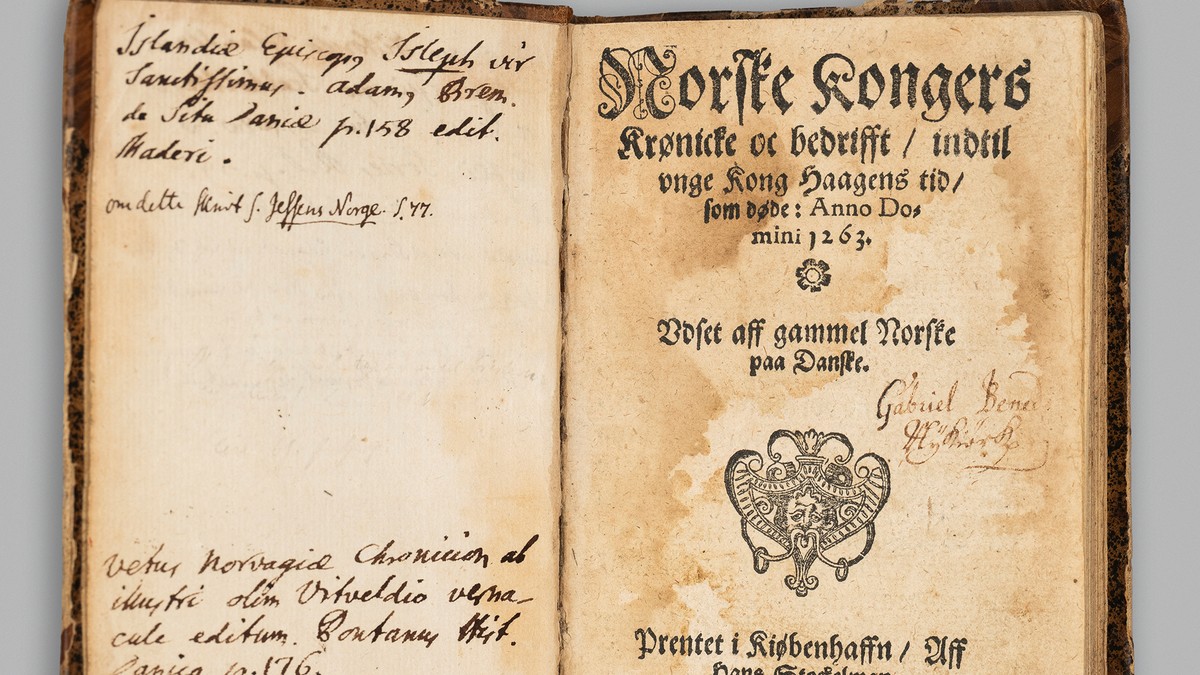 Islandiæ Episcopꝯ Isleph vir
Sanctissimus. adamꝯ Brem.
de Situ Daniæ p.158 edit.
Maderi.
om dette skrivt s. Jessens Norge. S.77.
vetus Norvagiæ Chronicion ab
illustri olim Vitveldio verna-
cule editum. Pontanus Hist.
Danica p.176.
Norſke Kongers
Krønicke oc bedrifft / indtil
vnge Kong Haagens tid /
ſom døde: Anno Do-
mini 1263.
Vdſet aff gammel Norſke
paa Danſke.
Gabriel Bened
Prentet i Kiøbenhaffn / Aff
Hans Stockelman